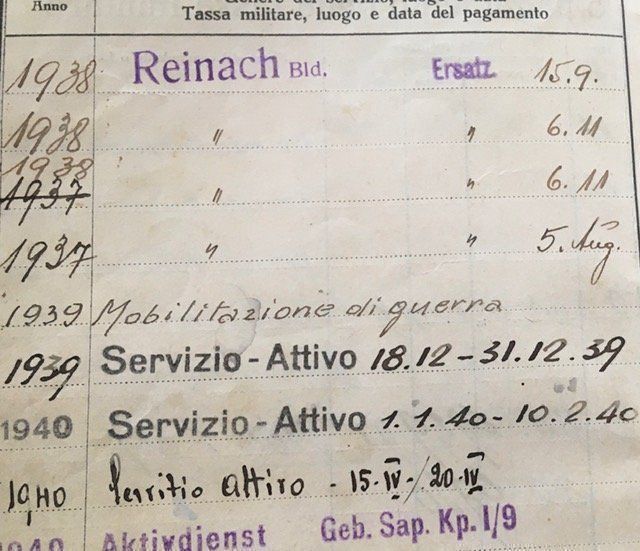 Anno
Genere del servizio, luogo e data
Tassa militare, luogo e data del pagamento
1938 Reinach Bld. Ersatz. 15.9.
1938 " " 6.11
1938
1937 " " 6.11
1937 " " 5. Aug.
1939 Mobilitazione di guerra
1939 Servizio-Attivo 18.12-31.12.39
1940 Servizio-Attivo 1.1.40-10.2.40
1940 Servitio attivo - 15-IV-/20-IV
1940 Aktivdienst Geb. Sap. Kp. I/9